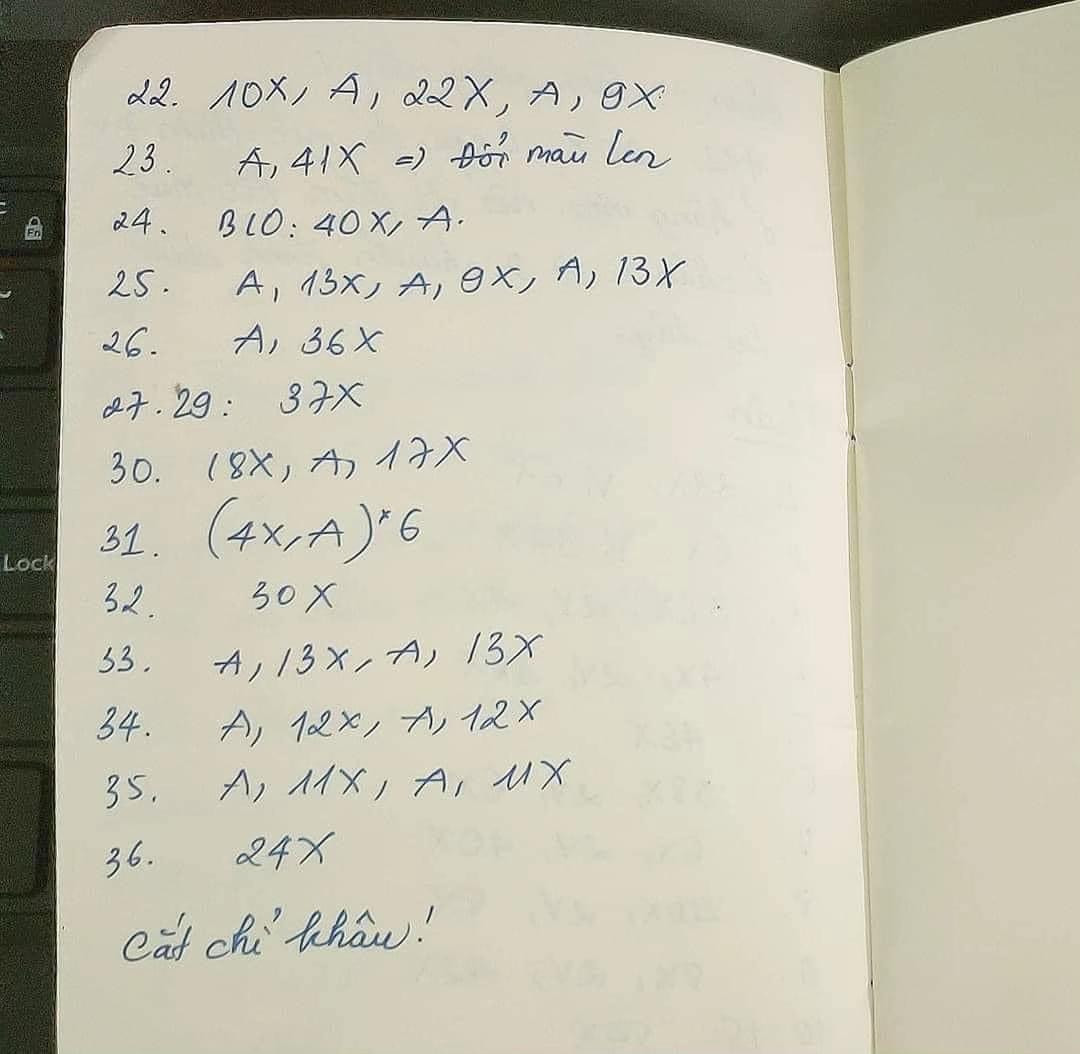 22. 10X, A, 22X, A, 9X
23. A, 41X => Đổi màu len
24. BLO: 40X, A.
25. A, 13X, A, 9X, A, 13X
26. A, 36X
27. 29: 37X
30. 18X, A, 17X
31. (4X, A)*6
32. 30X
33. A, 13X, A, 13X
34. A, 12X, A, 12X
35. A, 11X, A, 11X
36. 24X
Cắt chỉ khâu!
Fn
Lock